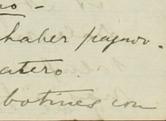 no-
haber pagado.
atero.
botines con